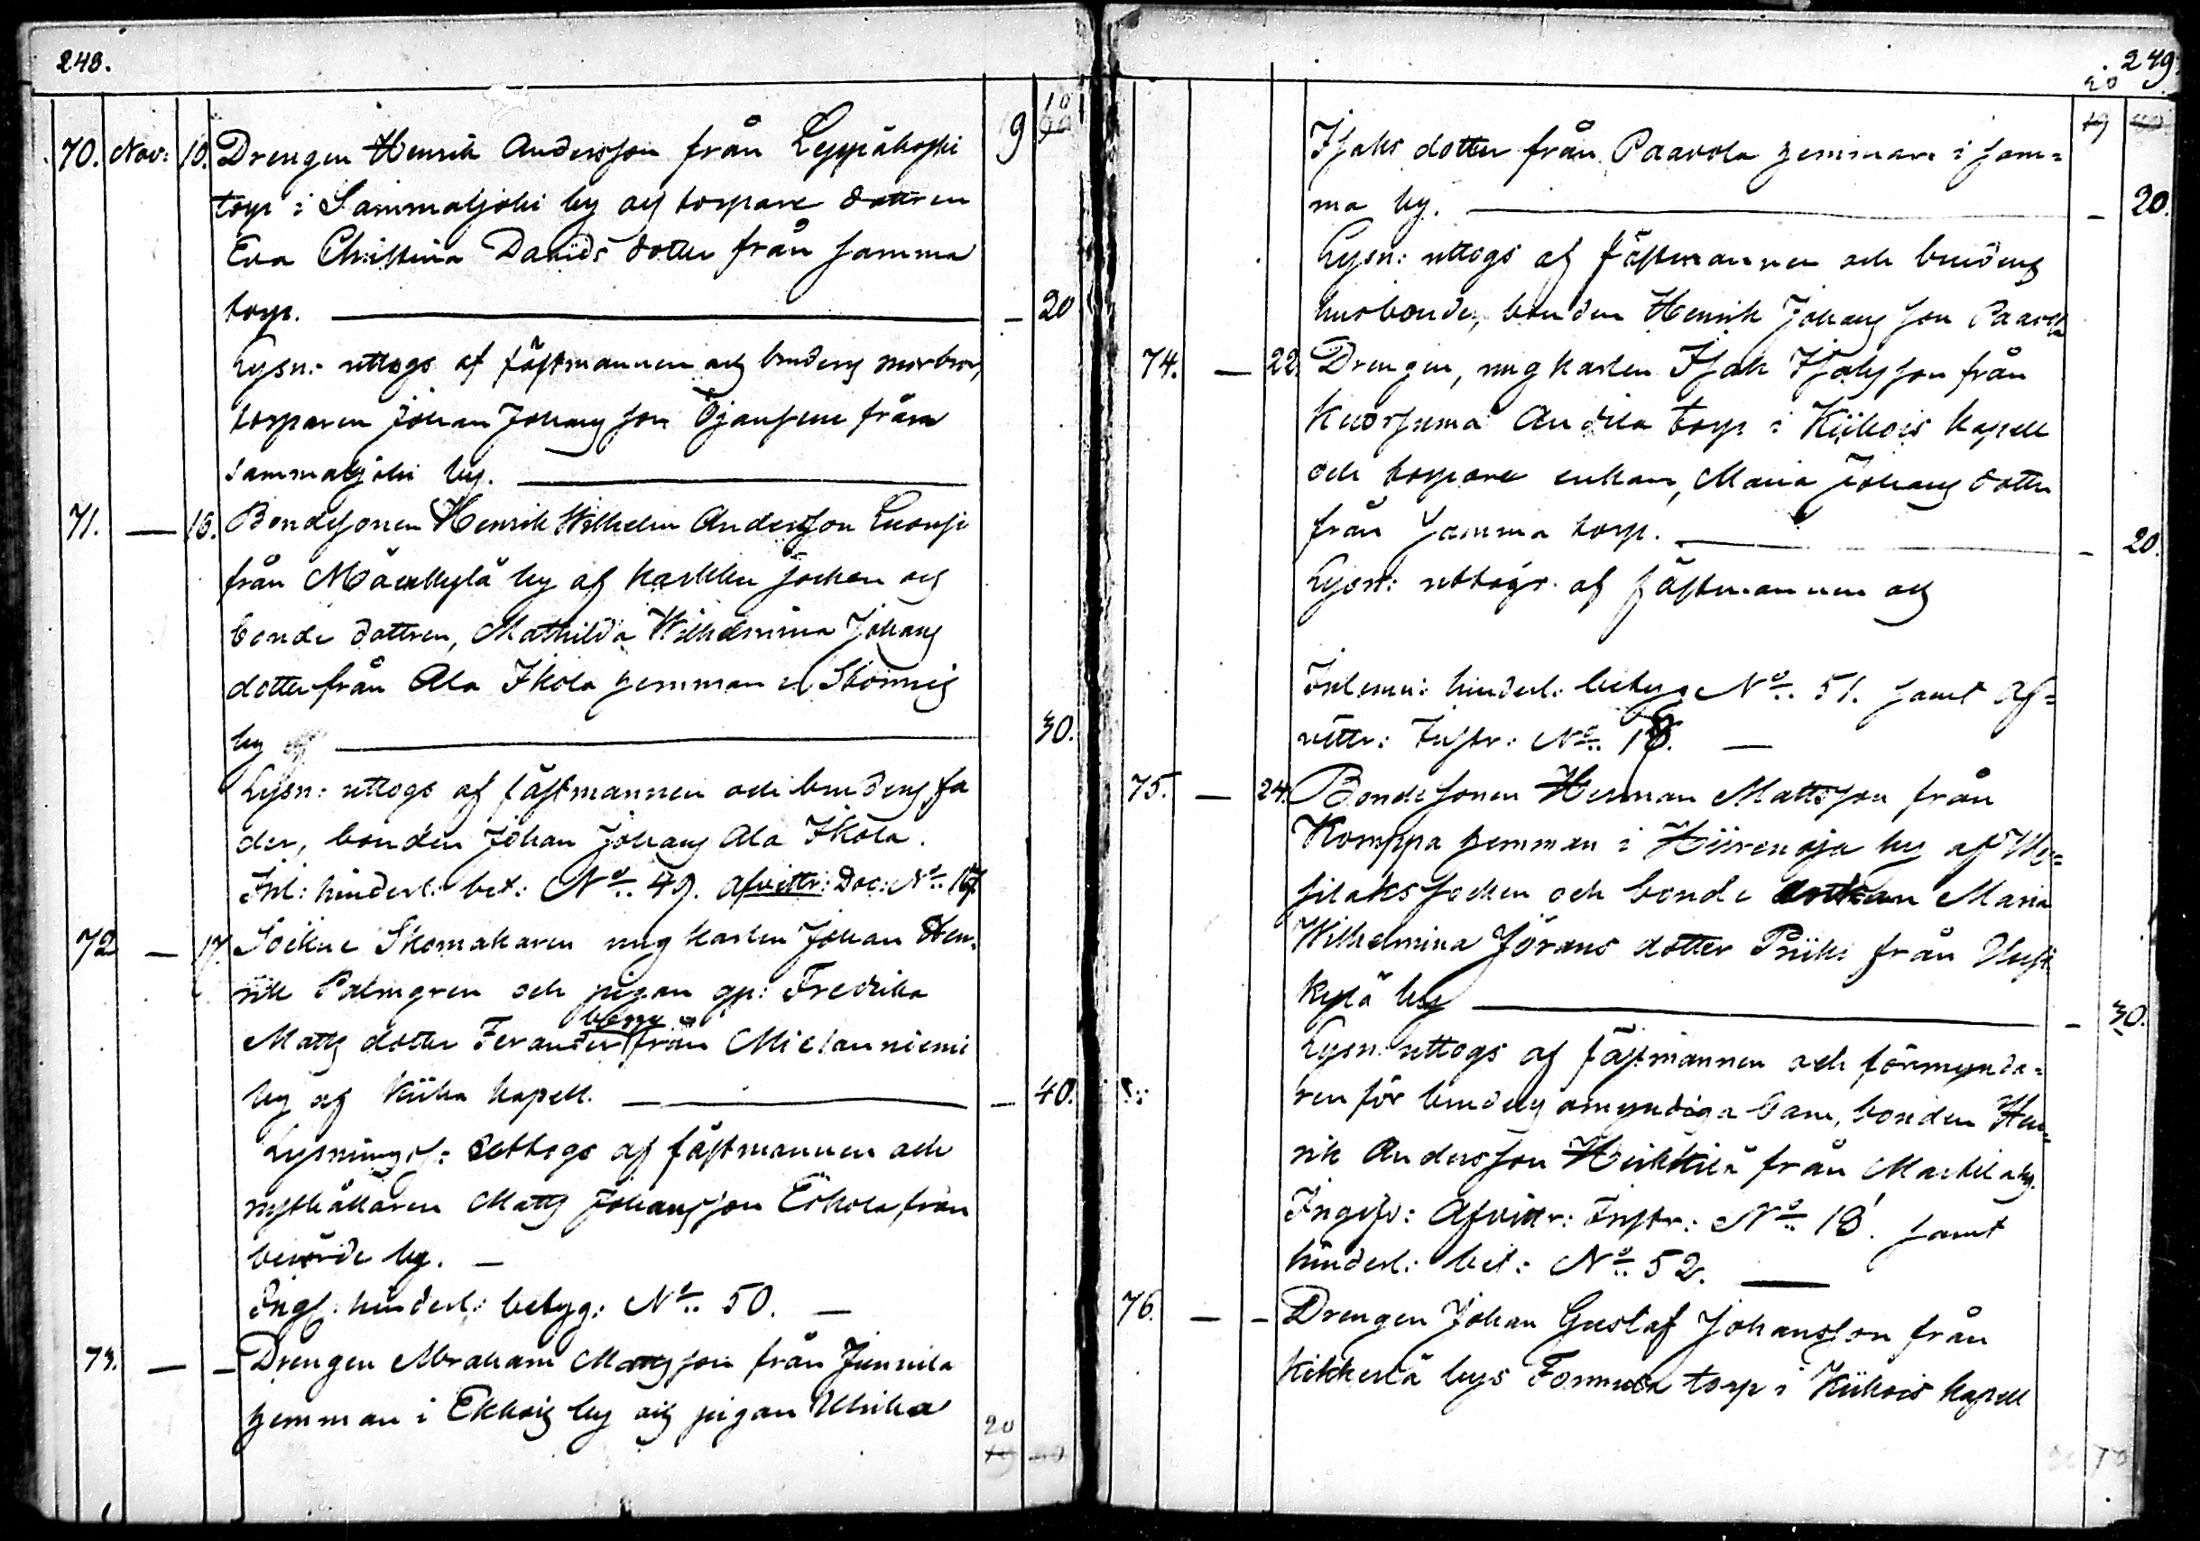 248.
19 10
70. Nov: 10. Drengen Henrik Andersson från Leppäkoski
torp i Sammaljoki by och torpare dottren
Eva Christina Davids dotter från samma
torp. — 20
Lysn: uttogs af fästmannen och brudens morbror,
torparen Johan Johansson Ojansuu från
Sammaljoki by.
71. — 15. Bondesonen Henrik Wilhelm Andersson Cuonsi
från Mäenkylä by af Karkku socken och
bonde dottren, Mathilda Wilhelmina Johans
dotter från Ala Ikola hemman i Stormis
by — 30.
Lysn: uttogs af fästmannen och brudens fa
der, bonden Johan Johans Ala Ikola.
Inl: hinderl: bet: No 49. Afvittr: Doc: No 17
72 — 17. Sockne Skomakaren ungkarlen Johan Hen-
rik Palmgren och pigan gp: Fredrika
Matts dotter Ferander från Mielanniemi
by af Kiika kapell. — 40.
Lysningss: uttogs af fästmannen och
rusthållaren Matts Johansson Eskola från
berörde by. —
Ings: hinderl: betyg: No 50. —
73. — — Drengen Abraham Mattsson från Junnila
hemman i Ekkois by och pigan Ulrika
20
249.
20
19
Isaks dotter från Paavola hemman i sam-
ma by. — 20.
Lysn: uttogs af fästmannen och brudens
husbonde, bonden Henrik Johansson Paavola
74. — 22. Drengen, ungkarlen Isak Isaksson från
Kuorsuma Andila torp i Kiikois kapell
och torpare enkan, Maria Johans dotter
från samma torp. — 20.
Lysn: uttogs af fästmannen och
Inlemn: hinderl: betyg No 51. samt Af-
vittr: Instr: No 18. —
75. — 24. Bondesonen Herman Mattsson från
Komppa hemman i Hiirenoja by af Mo-
silaks socken och bonde enkan Maria
Wilhelmina Jörans dotter Priiki från Uusi
kylä by — 30.
Lysn: uttogs af fästmannen och förmynda-
ren för brudens omyndiga barn, bonden Hen-
rik Andersson Heikkilä från Markila by.
Ingifv: Afvittr: Instr: No 18. samt
hinderl: bet: No 52. —
76. — — Drengen Johan Gustaf Johansson från
Kikkerlä bys Tommila torp i Kiikois kapell
20 70